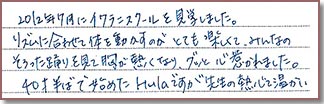 2012年9月にイワラニスクールを見学しました。
リズムに合わせて体を動かすのがとても楽しくて、みんなの
そろった踊りを見て胸が熱くなり、グッと心惹かれました。
40才半ばで始めたHulaですが先生の熱心で温かい